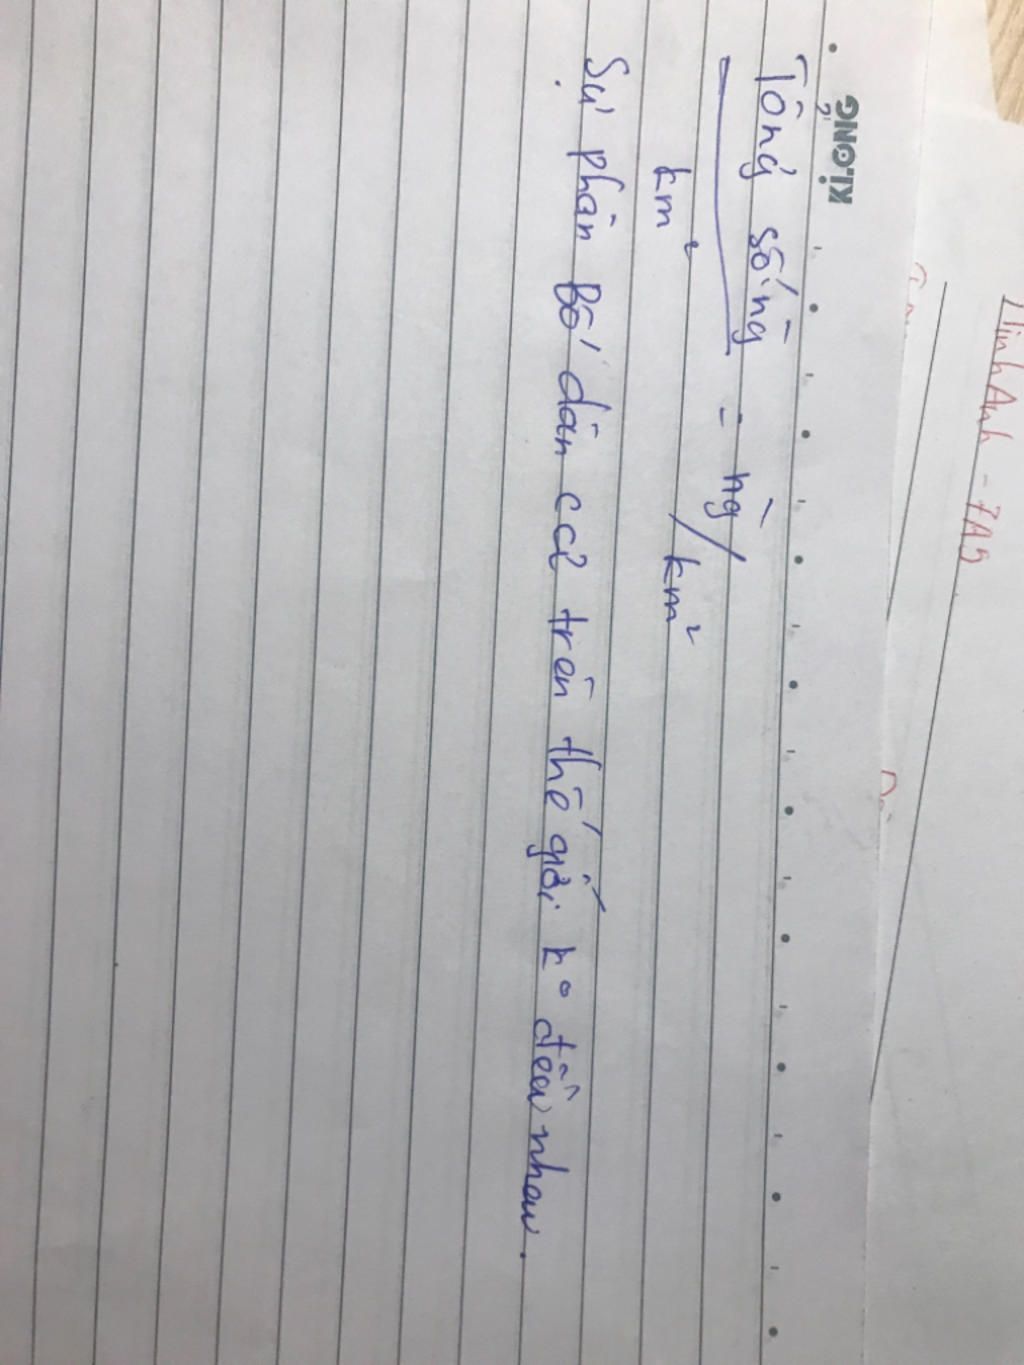 KLONG
Tổng số ng̃ = ng̃/km²
km²
Sự phân Bố dân cư trên thế giới ko đều nhau.
Minh Anh - 7A5